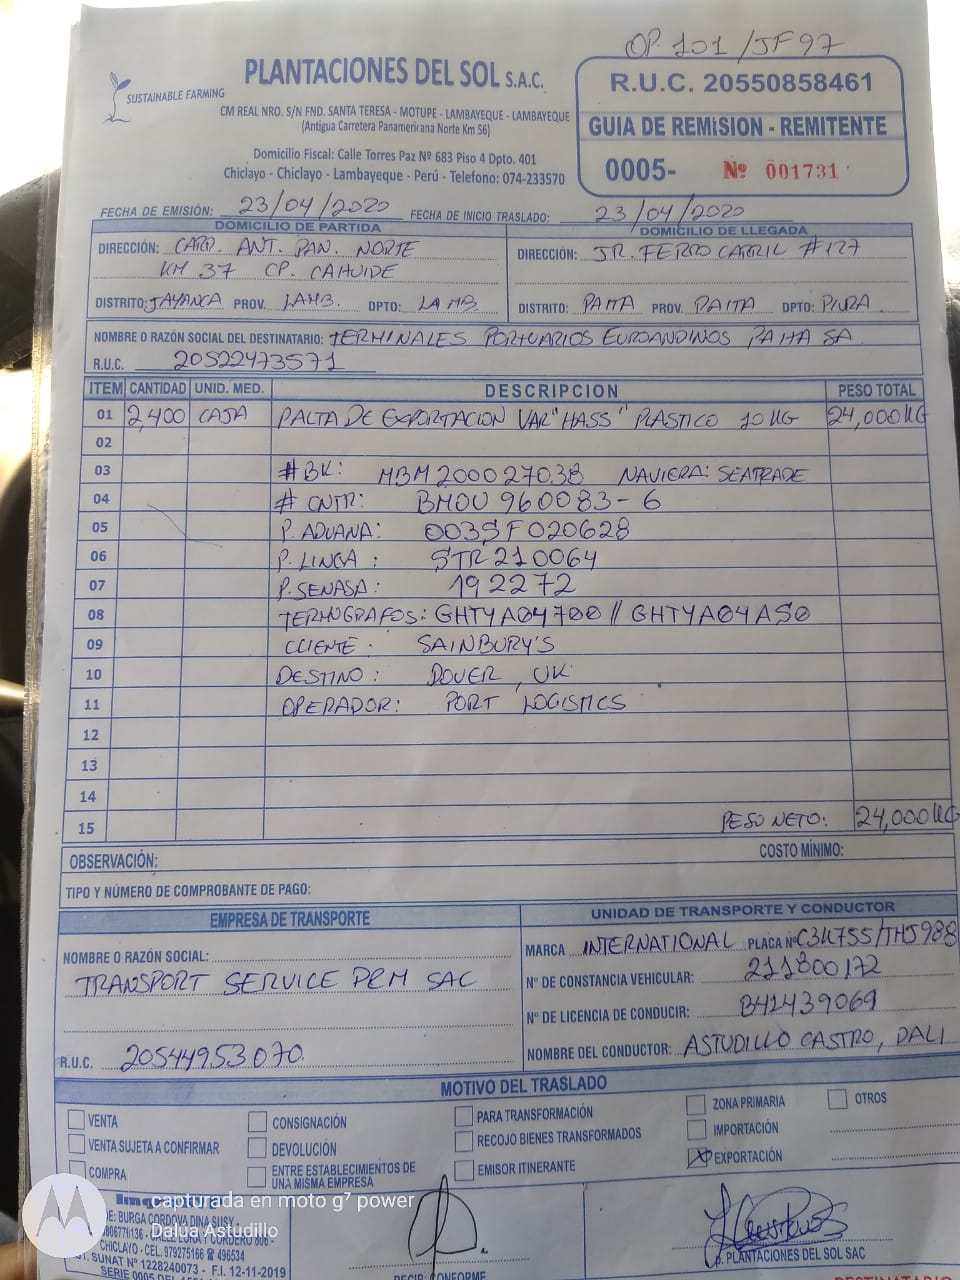 OP. 101 / JF97
SUSTAINABLE FARMING
PLANTACIONES DEL SOL S.A.C.
CM REAL NRO. S/N FND. SANTA TERESA - MOTUPE - LAMBAYEQUE - LAMBAYEQUE
(Antigua Carretera Panamericana Norte Km 56)
Domicilio Fiscal: Calle Torres Paz Nº 683 Piso 4 Dpto. 401
Chiclayo - Chiclayo - Lambayeque - Perú - Telefono: 074-233570
R.U.C. 20550858461
GUIA DE REMISION - REMITENTE
0005- Nº 001731
FECHA DE EMISIÓN: 23/04/2020 FECHA DE INICIO TRASLADO: 23/04/2020
DOMICILIO DE PARTIDA
DIRECCIÓN: CARR. ANT. PAN. NORTE
KM 37 CP. CAHUIDE
DISTRITO: JAYANCA PROV. LAMB. DPTO: LAMB.
DOMICILIO DE LLEGADA
DIRECCIÓN: JR. FERRO CARRIL #127
DISTRITO: PAITA PROV. PAITA DPTO: PIURA
NOMBRE O RAZÓN SOCIAL DEL DESTINATARIO: TERMINALES PORTUARIOS EUROANDINOS PAITA SA
R.U.C. 20522473571
ITEM CANTIDAD UNID. MED. DESCRIPCION PESO TOTAL
01 2,400 CAJA PALTA DE EXPORTACION VAR "HASS" PLASTICO 10 KG 24,000KG
02
03 #BK: MBM200027038 NAVIERA: SEATRADE
04 # CNTR: BMOU 960083-6
05 P. ADUANA: 003SF020628
06 P. LINEA: STR210064
07 P. SENASA: 192272
08 TERMOGRAFOS: GHTYA04700 // GHTYA04AS0
09 CLIENTE: SAINBURY'S
10 DESTINO: DOVER, UK
11 OPERADOR: PORT LOGISTICS
12
13
14
15 PESO NETO: 24,000KG
OBSERVACIÓN: COSTO MÍNIMO:
TIPO Y NÚMERO DE COMPROBANTE DE PAGO:
EMPRESA DE TRANSPORTE
NOMBRE O RAZÓN SOCIAL:
TRANSPORT SERVICE PRM SAC
R.U.C. 20544953070
UNIDAD DE TRANSPORTE Y CONDUCTOR
MARCA INTERNATIONAL PLACA Nº C3K755/THJ988
N° DE CONSTANCIA VEHICULAR: 211800172
N° DE LICENCIA DE CONDUCIR: B41439069
NOMBRE DEL CONDUCTOR: ASTUDILLO CASTRO, DALI
MOTIVO DEL TRASLADO
VENTA CONSIGNACIÓN PARA TRANSFORMACIÓN ZONA PRIMARIA OTROS
VENTA SUJETA A CONFIRMAR DEVOLUCIÓN RECOJO BIENES TRANSFORMADOS IMPORTACIÓN
COMPRA ENTRE ESTABLECIMIENTOS DE UNA MISMA EMPRESA EMISOR ITINERANTE X EXPORTACIÓN
capturada en moto g⁷ power
Dalua Astudillo
DE: BURGA CORDOVA DINA SUSY
CHICLAYO - CEL. 979275166 ☎ 496534
AUT. SUNAT N° 1228240073 - F.I. 12-11-2019
RECIBI CONFORME
p. PLANTACIONES DEL SOL SAC
DESTINATARIO